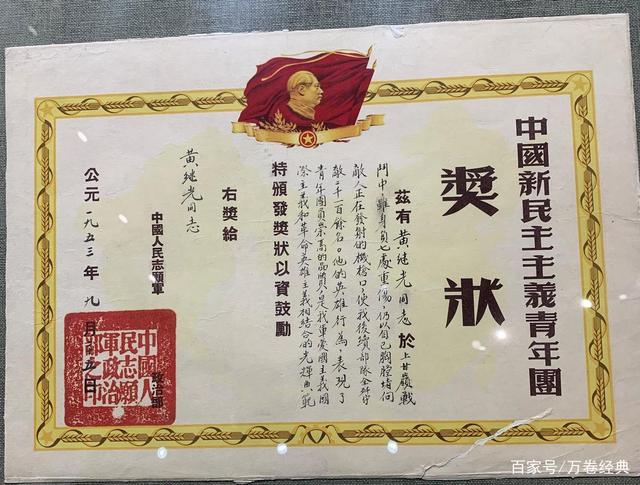 中國新民主主義青年團
奬狀
兹有黄继光同志於上甘嶺戰
鬥中雖身負七處重傷仍以自己胸膛堵向
敵人正在發射的機槍口,使我後續部隊全歼守
敵一千一百餘名。他的英雄行為,表現了
青年團員崇高的品質,是我軍愛國主義國
際主義和革命英雄主義相結合的光輝典範
特頒發奬狀以資鼓勵
右奬給
黄继光同志
中國人民志願軍
政治部
公元一九五三年九月 五日
中國人
民志願
軍政治
部之印
百家号/万卷经典